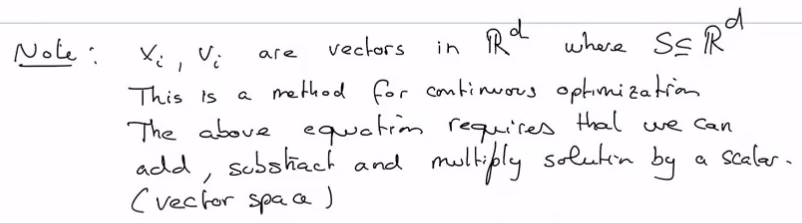 Note : xᵢ, vᵢ are vectors in ℝᵈ where S ⊆ ℝᵈ
This is a method for continuous optimization
The above equation requires that we can
add, substract and multiply solution by a scalar.
(vector space)